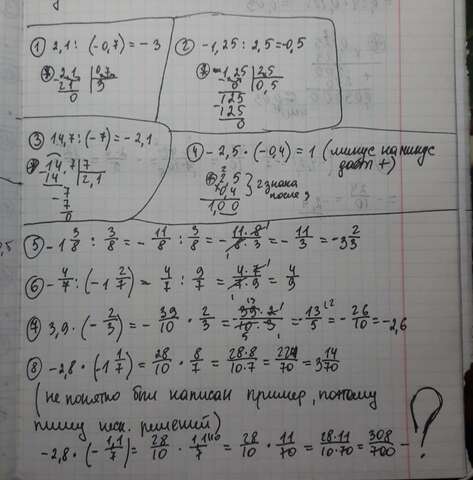 ① 2,1 : (-0,7) = -3
2,1 | 0,7
21 | 3
0
② -1,25 : 2,5 = -0,5
1,25 | 2,5
0 | 0,5
125
125
0
③ 14,7 : (-7) = -2,1
14,7 | 7
14 | 2,1
7
7
0
④ -2,5 · (-0,4) = 1 (минус на минус
даёт +)
2,5
0,4
1,00
2 знака
после ,
⑤ -1 3/8 : 3/8 = -11/8 : 3/8 = -11·8/8·3 = -11/3 = -3 2/3
⑥ -4/7 : (-1 2/7) = 4/7 : 9/7 = 4·7/7·9 = 4/9
⑦ 3,9 · (-2/3) = -39/10 · 2/3 = -39·2/10·3 = -13/5 = -26/10 = -2,6
⑧ -2,8 · (-1 1/7) = 28/10 · 8/7 = 28·8/10·7 = 224/70 = 3 14/70
(не понятно был написан пример, поэтому
пишу неск. решений)
-2,8 · (-1,1/7) = 28/10 · 1,1/7 = 28/10 · 11/70 = 28·11/10·70 = 308/700 - ?